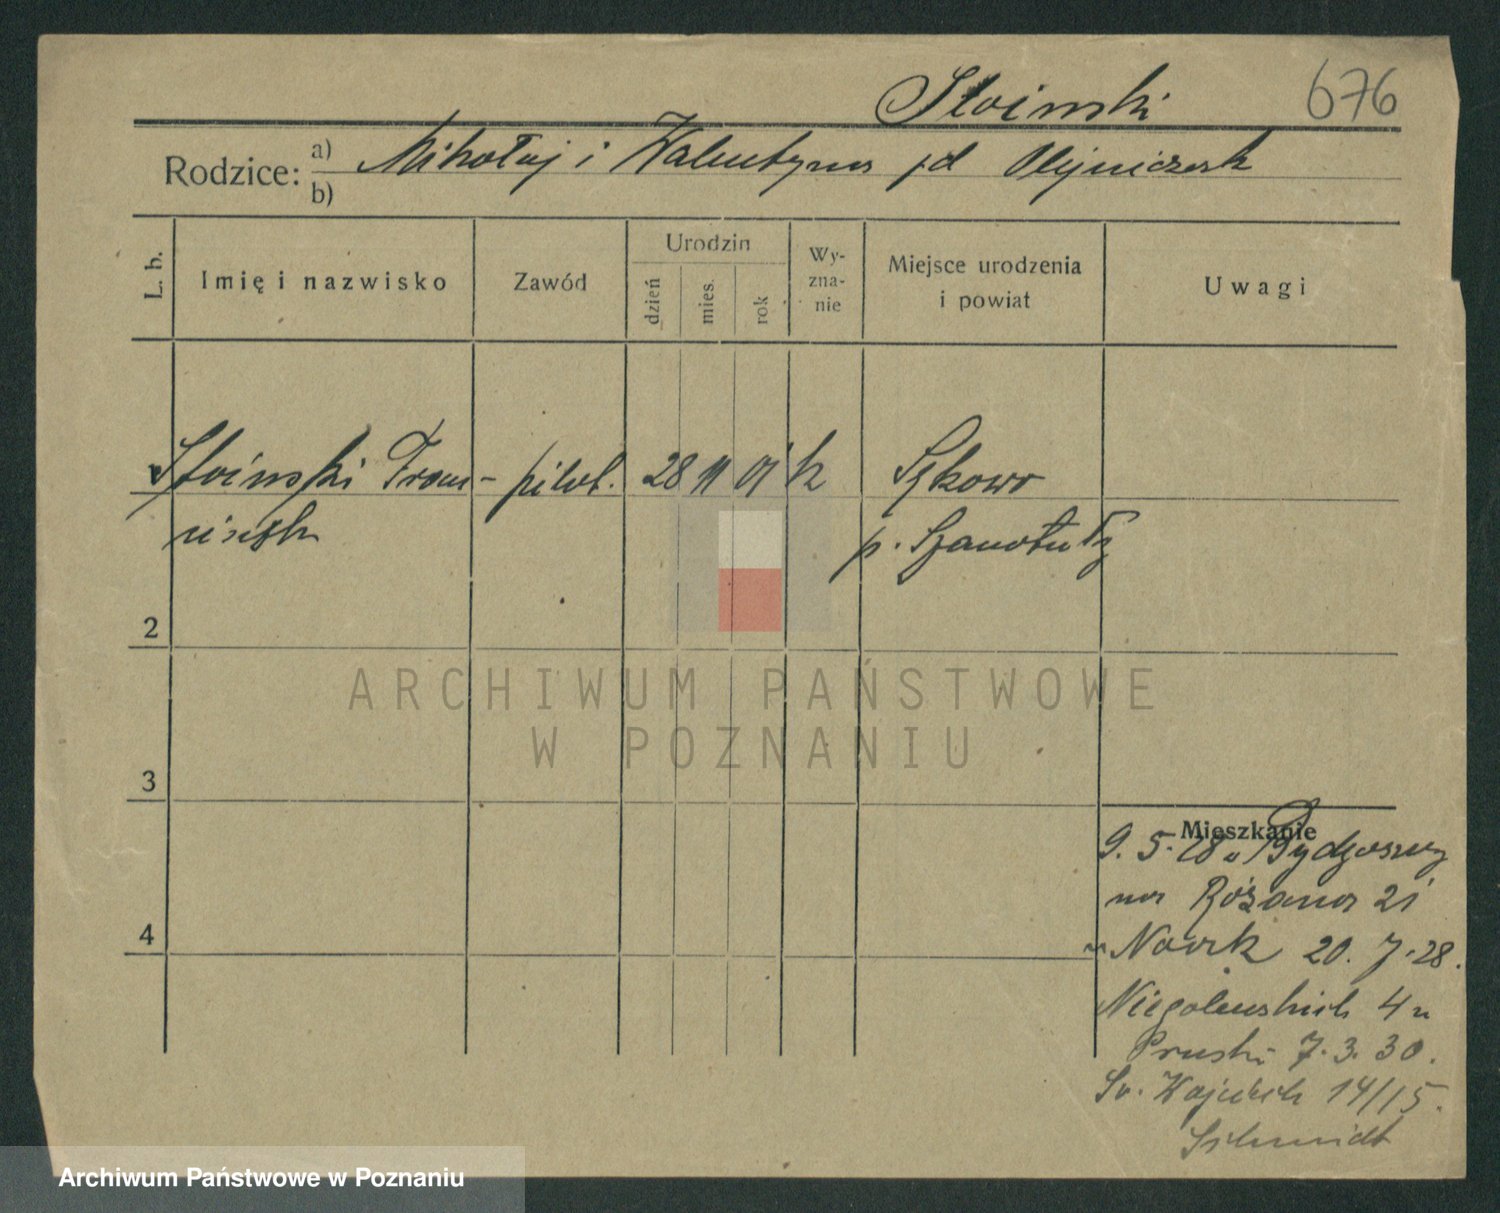 Słoinski 676
Rodzice: a) Mikołaj i Walentyna zd Olejniczak
b)
L. b. Imię i nazwisko Zawód Urodzin dzień mies. rok Wy-zna-nie Miejsce urodzenia i powiat Uwagi
Słoinski Fran- pilot. 28 11 01 k Sękowo
ciszek p. Szamotuły
2
3
4
Mieszkanie
9. 5. 28 u Bydgoszczy
na Różana 21
u Nowak 20. 7. 28.
Niegolewskich 4 u
Pruski 7. 3. 30.
Św. Wojciech 14/15.
Schmidt
ARCHIWUM PAŃSTWOWE
W POZNANIU
Archiwum Państwowe w Poznaniu